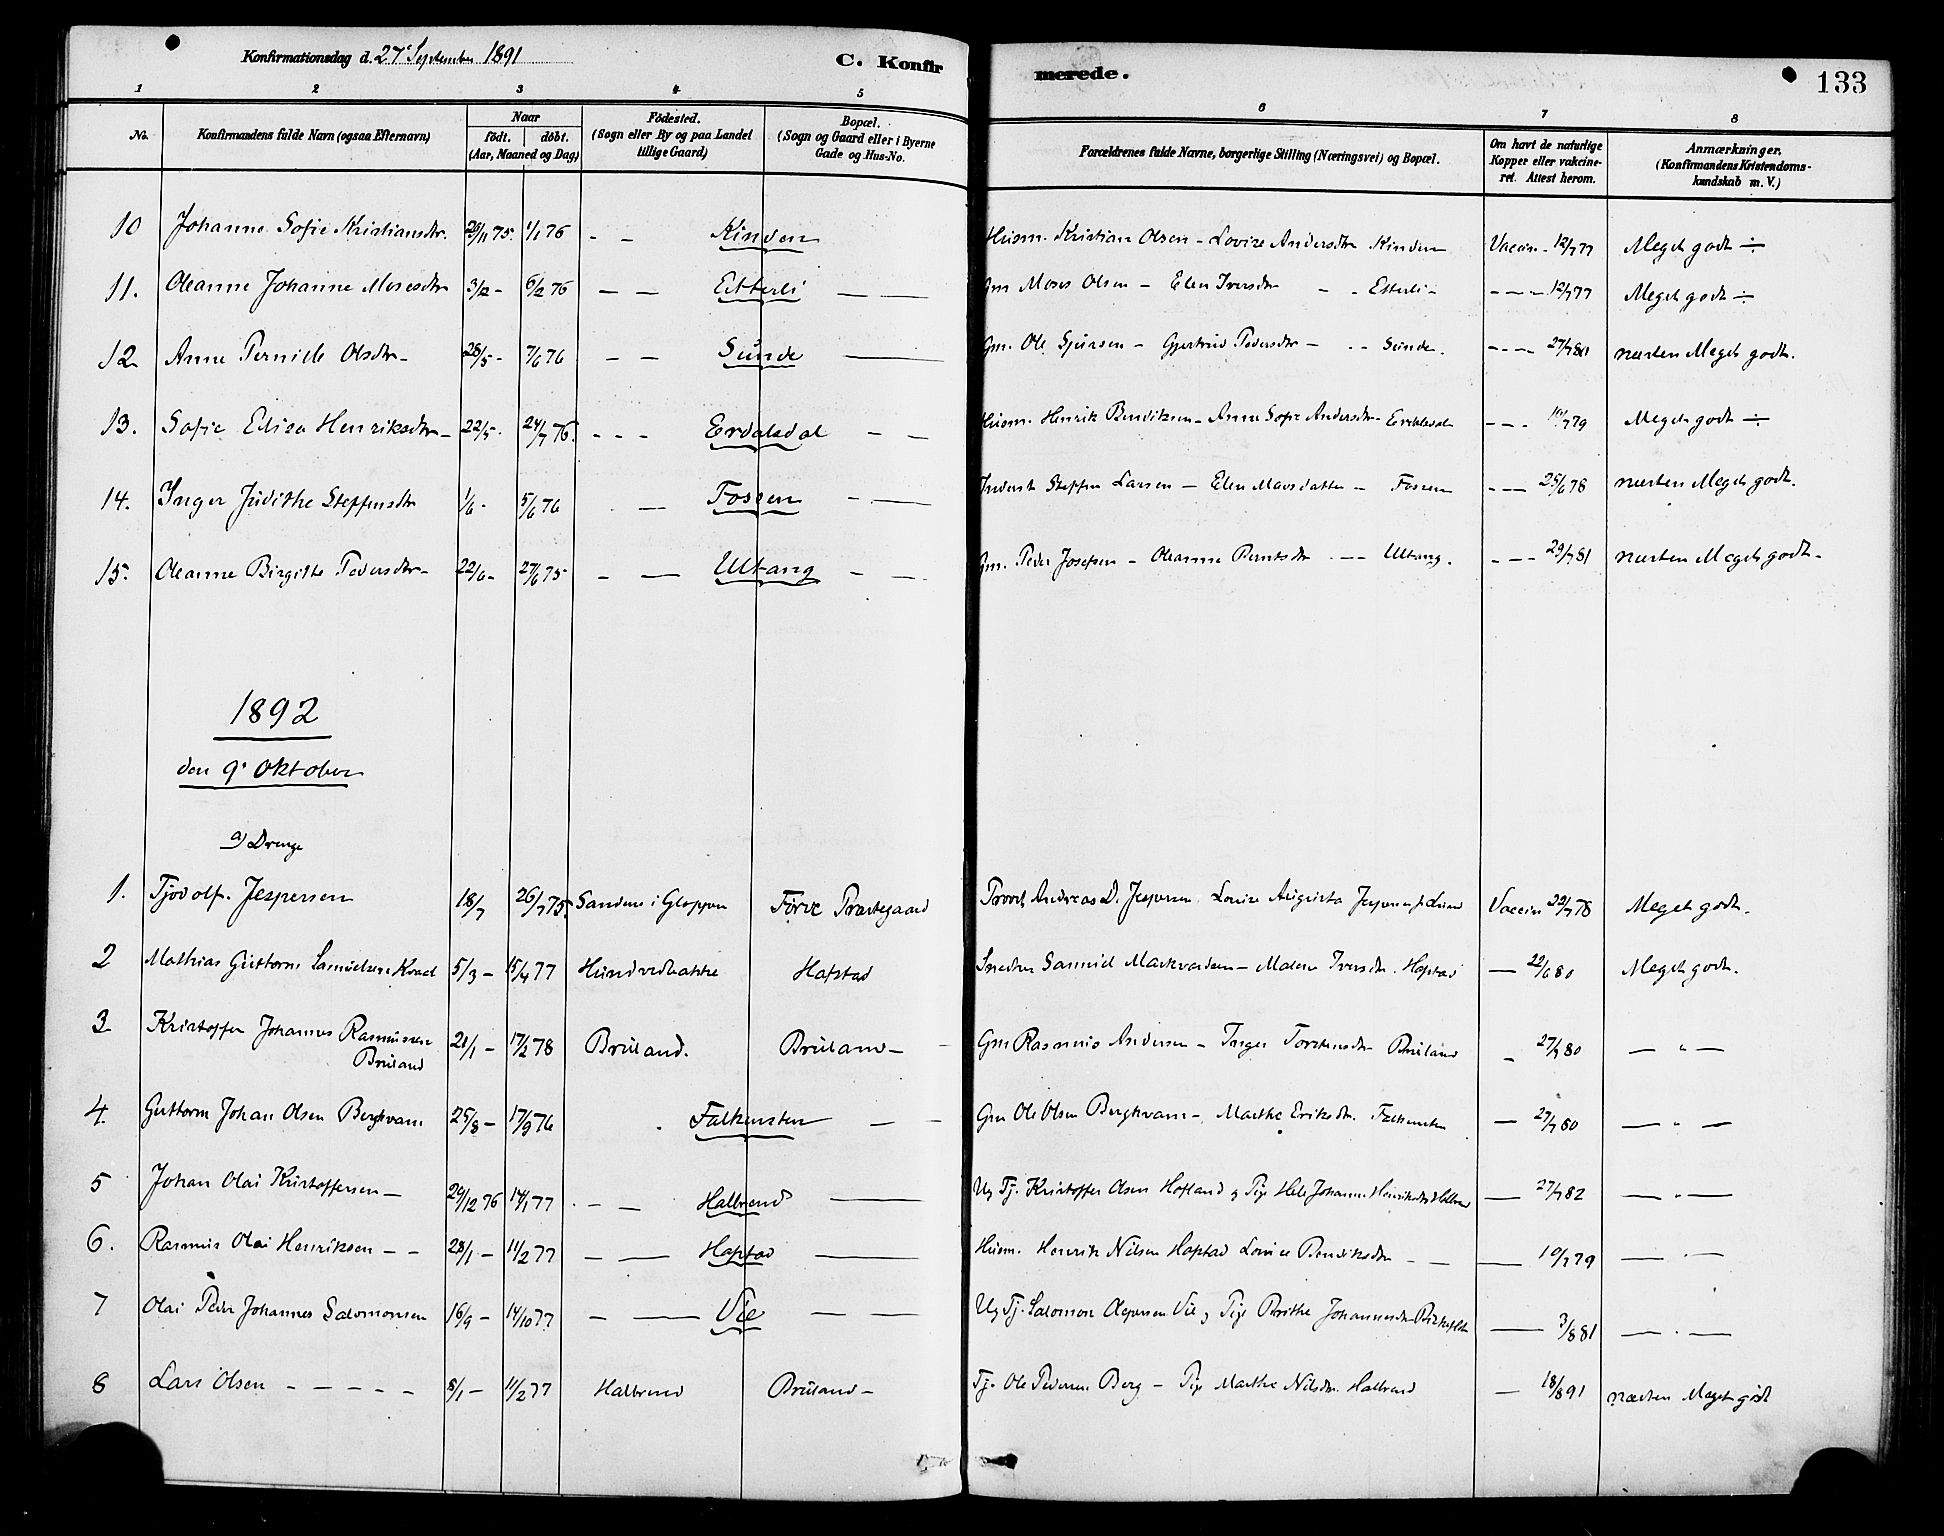 Konfirmationsdag d. 27de September 1891
C. Konfirmerede.
133
1 2 3 4 5 6 7 8
No. Konfirmandens fulde Navn (ogsaa Efternavn) Naar født. døbt. (Aar, Maaned og Dag) Fødested. (Sogn eller By og paa Landet tillige Gaard) Bopæl. (Sogn og Gaard eller i Byerne Gade og Hus-No. Forældrenes fulde Navne, borgerlige Stilling (Næringsvei) og Bopæl. Om havt de naturlige Kopper eller vakcineret. Attest herom. Anmærkninger. (Konfirmandens Kristendomskundskab m. V.)
10 Johanne Sofie Kristiansdtr. 75. 1/1 76 - - Kinden Husm. Kristian Olsen - Lovise Andersdtr Kinden Vaccin - 12/7 77 Meget godt ÷
11. Oleanne Johanne Mosesdtr 3/12 - 6/2 76 — — Etterli — — Gm Moses Olsen - Elen Iversdtr - - Etterli - - - - 12/7 77 Meget godt ÷
12 Anne Pernille Olsdtr - 28/5 - 7/6 76 — — Sunde — Gm. Ole Sjursen - Gjertrud Pedersdtr - - - Sunde. - - - 27/7 80 næsten Meget godt.
13. Sofie Elisa Henriksdtr - 22/5 - 24/7 76. - - - Erdalsdal — — Husm. Henrik Bendiksen - Anne Sofie Andersdtr - Erdalsdal - - - 10/7 79 Meget godt ÷
14. Inger Judithe Steffensdtr 1/6 - 5/6 76 — Fossen - — Inderst Steffen Larsen - Elen Mads datter - Fossen - - - 25/6 78 næsten Meget godt.
15. Oleanne Birgitte Pedersdtr - 22/6 - 27/6 75 - — Ultang — — Gm. Peder Josefsen - Oleanne Berntsdtr - — Ultang. - - - 29/7 81 næsten Meget godt -
1892
den 9de Oktober
a) Drenge
1. Tjodolf Jespersen 18/7 26/7 75. Sandene i Gloppen Førde Prestegaard Provst Andreas D. Jespersen Louise Augusta Jespersen f. Lund Vaccin 22/7 78 Meget godt.
2 Mathias Guttorm Samuelsen Kvaal 5/3 - 15/4 77 Hundvedbakke Hafstad Snedker Samuel Markvardsen - Malene Iversdtr. Hafstad — 22/6 80 Meget godt.
3 Kristoffer Johannes Rasmussen
Bruland 21/1 - 17/2 78 Bruland. Bruland - Gm Rasmus Andersen - Inger Torstensdtr Bruland - 27/7 80 — " —
4. Guttorm Johan Olsen Bergkvam 25/8 - 17/9 76 Falkensten — - Gm Ole Olsen Bergkvam - Marthe Eriksdtr. Falkensten — 27/7 80 — " —
5 Johan Olai Kristoffersen — 29/12 76 14/1 77 - — Halbrend — Ug Tj. Kristoffer Olsen Hofland og Pige Helle Johanne Henriksdtr Halbrend — 27/7 82 — " —
6. Rasmus Olai Henriksen - - 28/1 - 11/2 77 — — Hafstad — Husm. Henrik Nilsen Hafstad Lovise Bendiksdtr - - — 10/7 79 — " —
7 Olai Peder Johannes Salomonsen 16/9 - 14/10 77 — — Vie — — Ug Tj. Salomon Vie og Pige Brithe Johannesdtr — 3/8 81 — " —
8 Lars Olsen - - - - - 8/1 - 11/2 77 Halbrend Bruland - Tj. Ole Pedersen Berg - Pige Marthe Nilsdtr. Halbrend — 18/8 91 næsten Meget godt